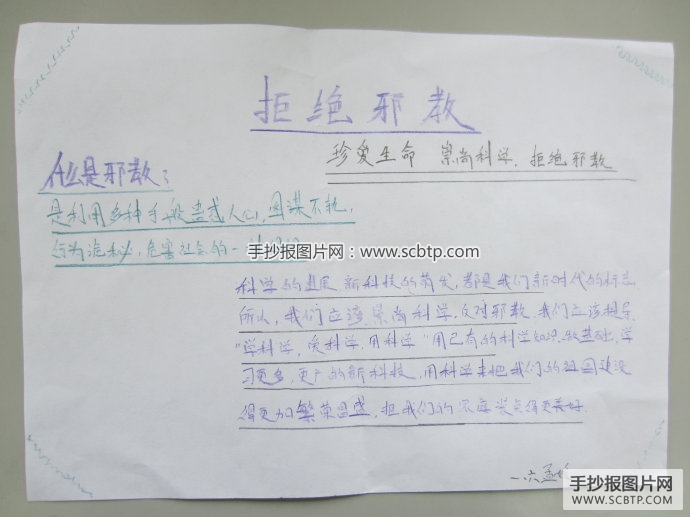 拒绝邪教
珍爱生命 崇尚科学,拒绝邪教
什么是邪教:
是利用多种手段蛊惑人心,图谋不轨,
行为诡秘,危害社会的一
手抄报图片网:www.scbtp.com
科学的进展 新科技的萌发,都是我们新时代的标志
所以,我们应该 崇尚科学,反对邪教.我们应该提导
"学科学,爱科学,用科学"用已有的科学知识做基础,学
习更多,更广的新科技,用科学来把我们的祖国建设
得更加繁荣昌盛,把我们的家庭
得更美好.
一六
手抄报图片网
WWW.SCBTP.COM